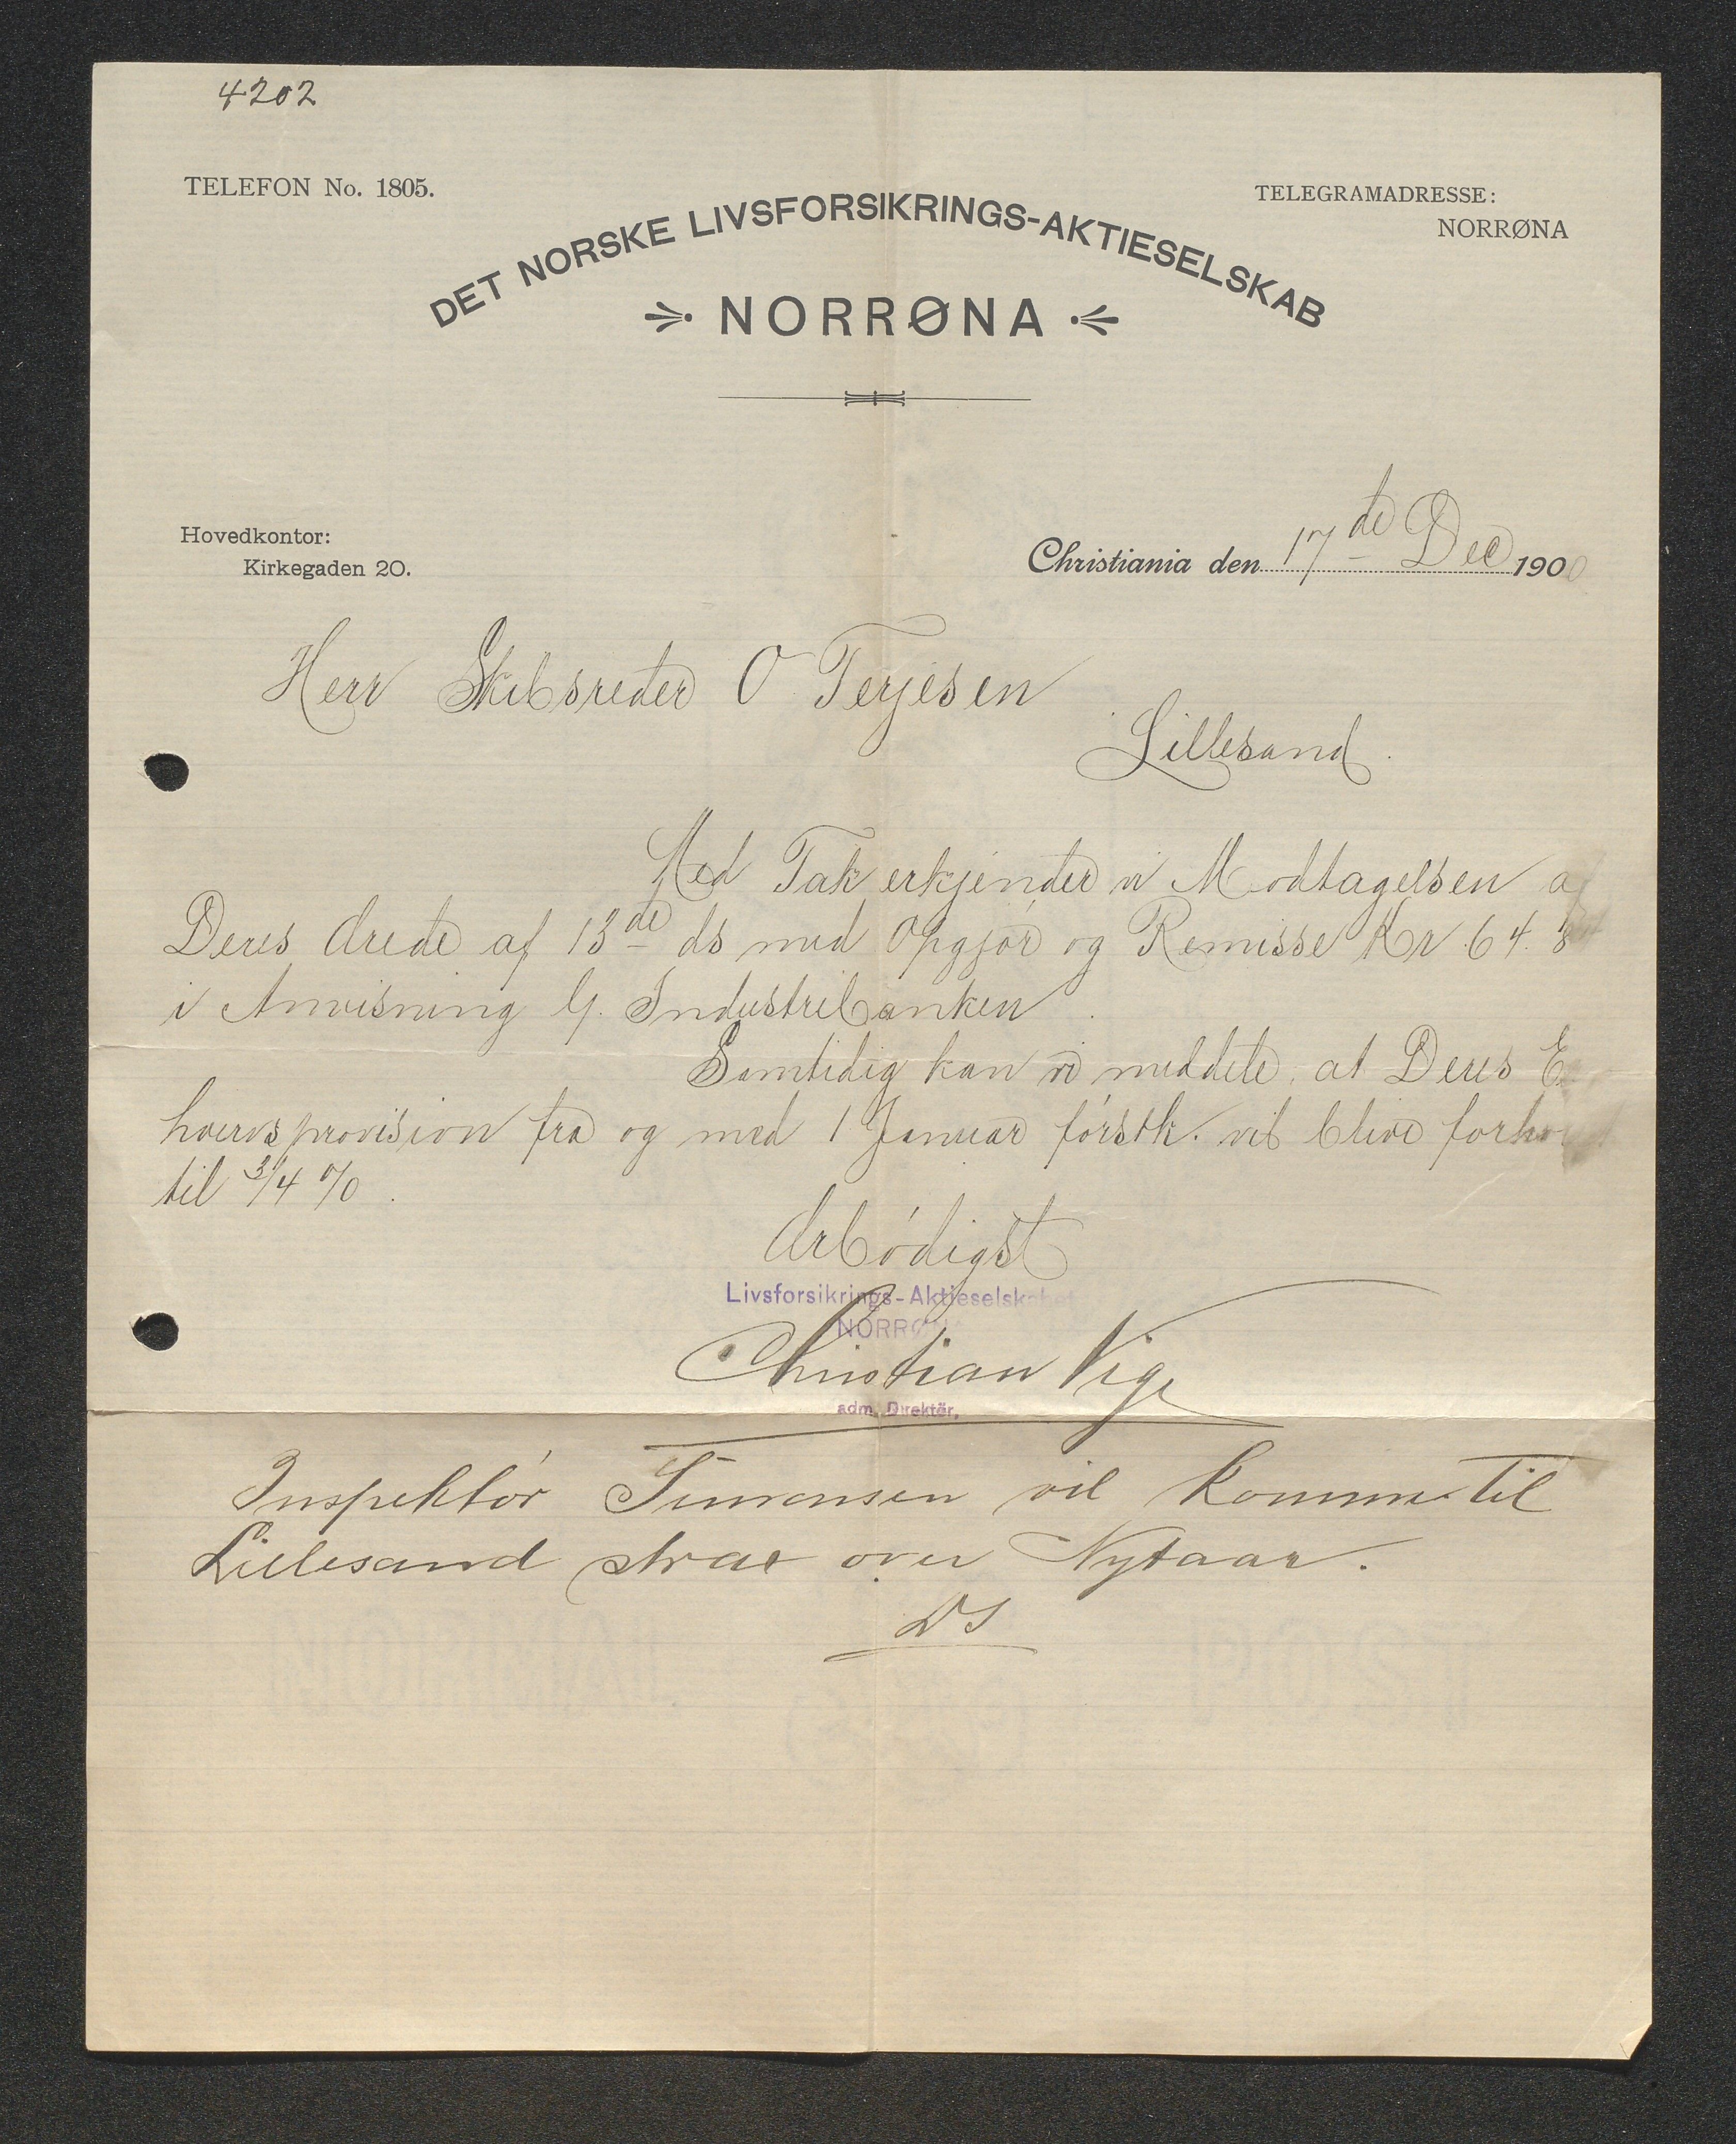 4202
TELEFON No. 1805.
TELEGRAMADRESSE:
NORRØNA
DET NORSKE LIVSFORSIKRINGS-AKTIESELSKAB
NORRØNA
Hovedkontor:
Kirkegaden 20.
Christiania den 17de Dec 1900
Herr Skibsreder O Terjesen
Lillesand.
Med Tak erkjender vi Modtagelsen af
Deres ærede af 13de ds med Opgjør og Remisse Kr 64.
i Anvisning p. Industribanken.
Samtidig kan vi meddele, at Deres Er
hvervsprovision fra og med 1 Januar førstk. vil blive
til 3/4 %.
Ærbødigst
Livsforsikrings-Aktieselskabet
NORRØNA
Christian Vige
adm. Direktör.
Inspektør Simonsen vil komme til
Lillesand strax over Nytaar.
DS